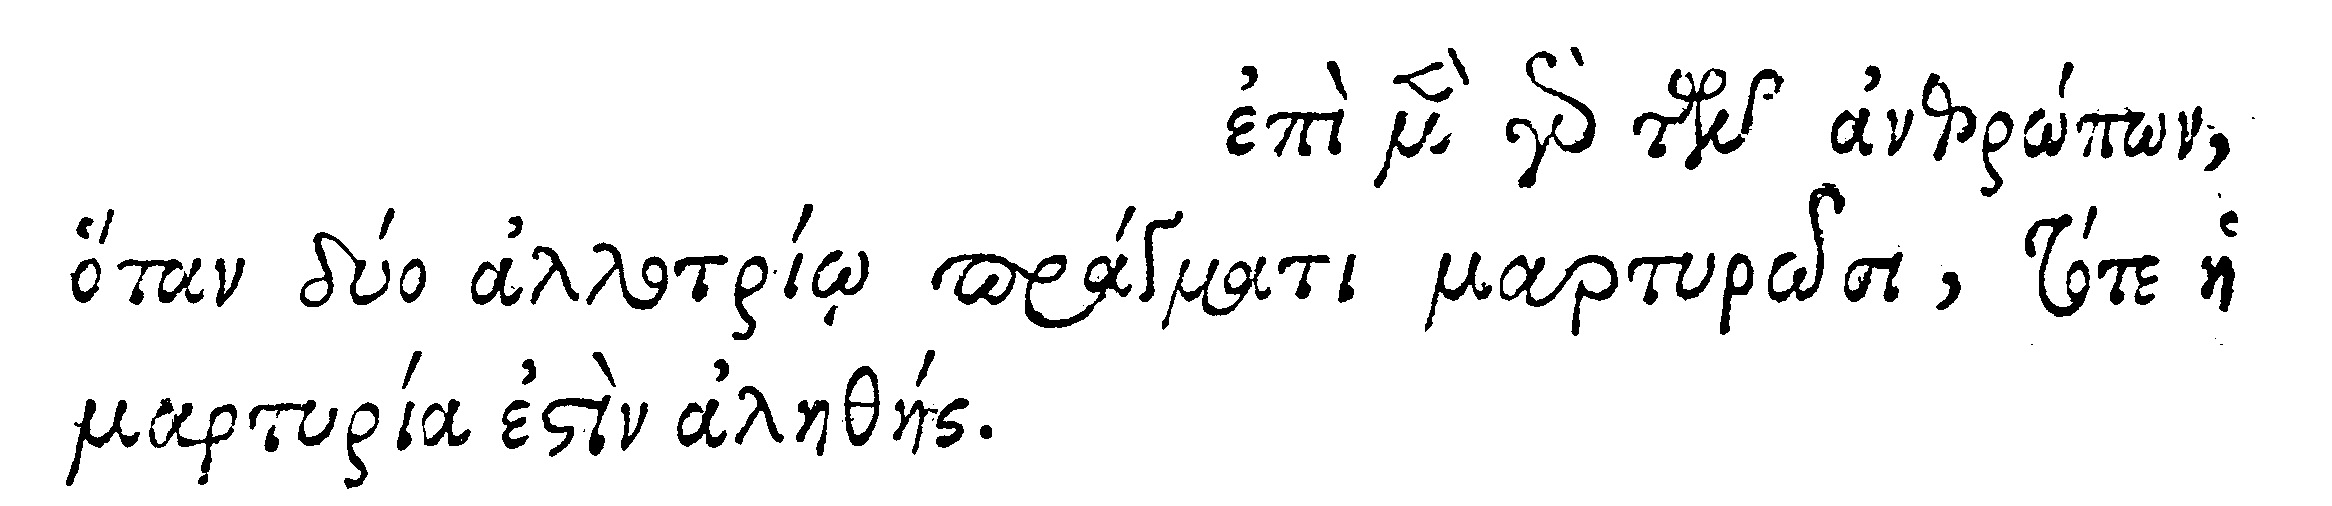 ἐπὶ μὲν γὰρ τῶν ἀνθρώπων,
ὅταν δύο ἀλλοτρίῳ πράγματι μαρτυρῶσι, τότε ἡ
μαρτυρία ἐστὶν ἀληθής.